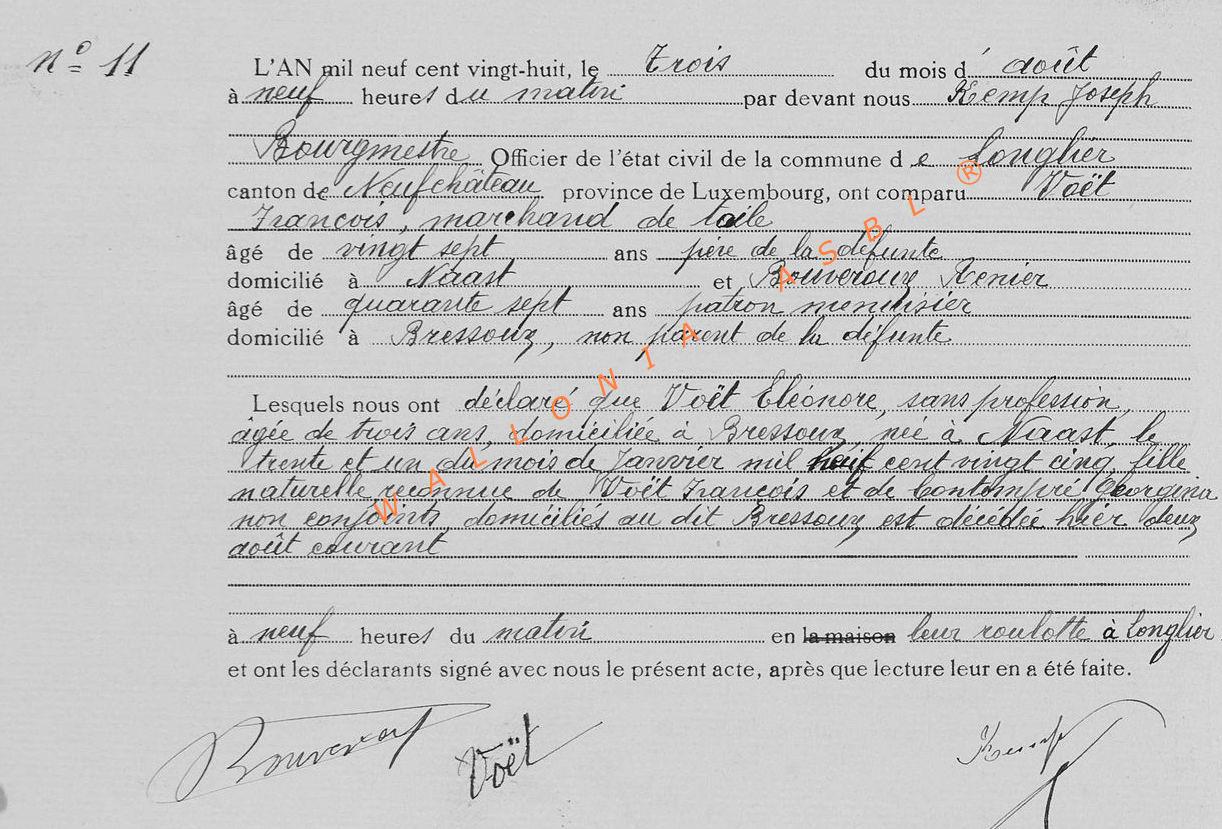 n° 11
L'AN mil neuf cent vingt-huit, le Trois du mois d' août
à neuf heures du matin par devant nous Kemp Joseph
Bourgmestre Officier de l'état civil de la commune de Longlier
canton de Neufchâteau province de Luxembourg, ont comparu Voët
François, marchand de toile
âgé de vingt sept ans père de la défunte
domicilié à Naast et Bouveroux Renier
âgé de quarante sept ans patron menuisier
domicilié à Bressoux, non parent de la défunte
Lesquels nous ont déclaré que Voët Eléonore, sans profession,
âgée de trois ans, domiciliée à Bressoux, née à Naast, le
trente et un du mois de Janvier mil neuf cent vingt cinq, fille
naturelle reconnue de Voët François et de Contempré Georgina
non conjoints, domiciliés au dit Bressoux est décédée hier deux
août courant
à neuf heures du matin en la maison leur roulotte à Longlier
et ont les déclarants signé avec nous le présent acte, après que lecture leur en a été faite.
Bouveroux Voët Kemp
WALLONIA ASBL ®